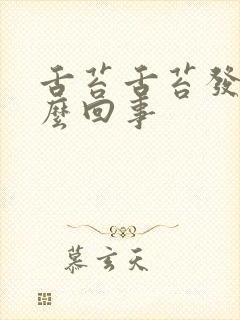 舌苔舌苔發
麼回事
慕玄天